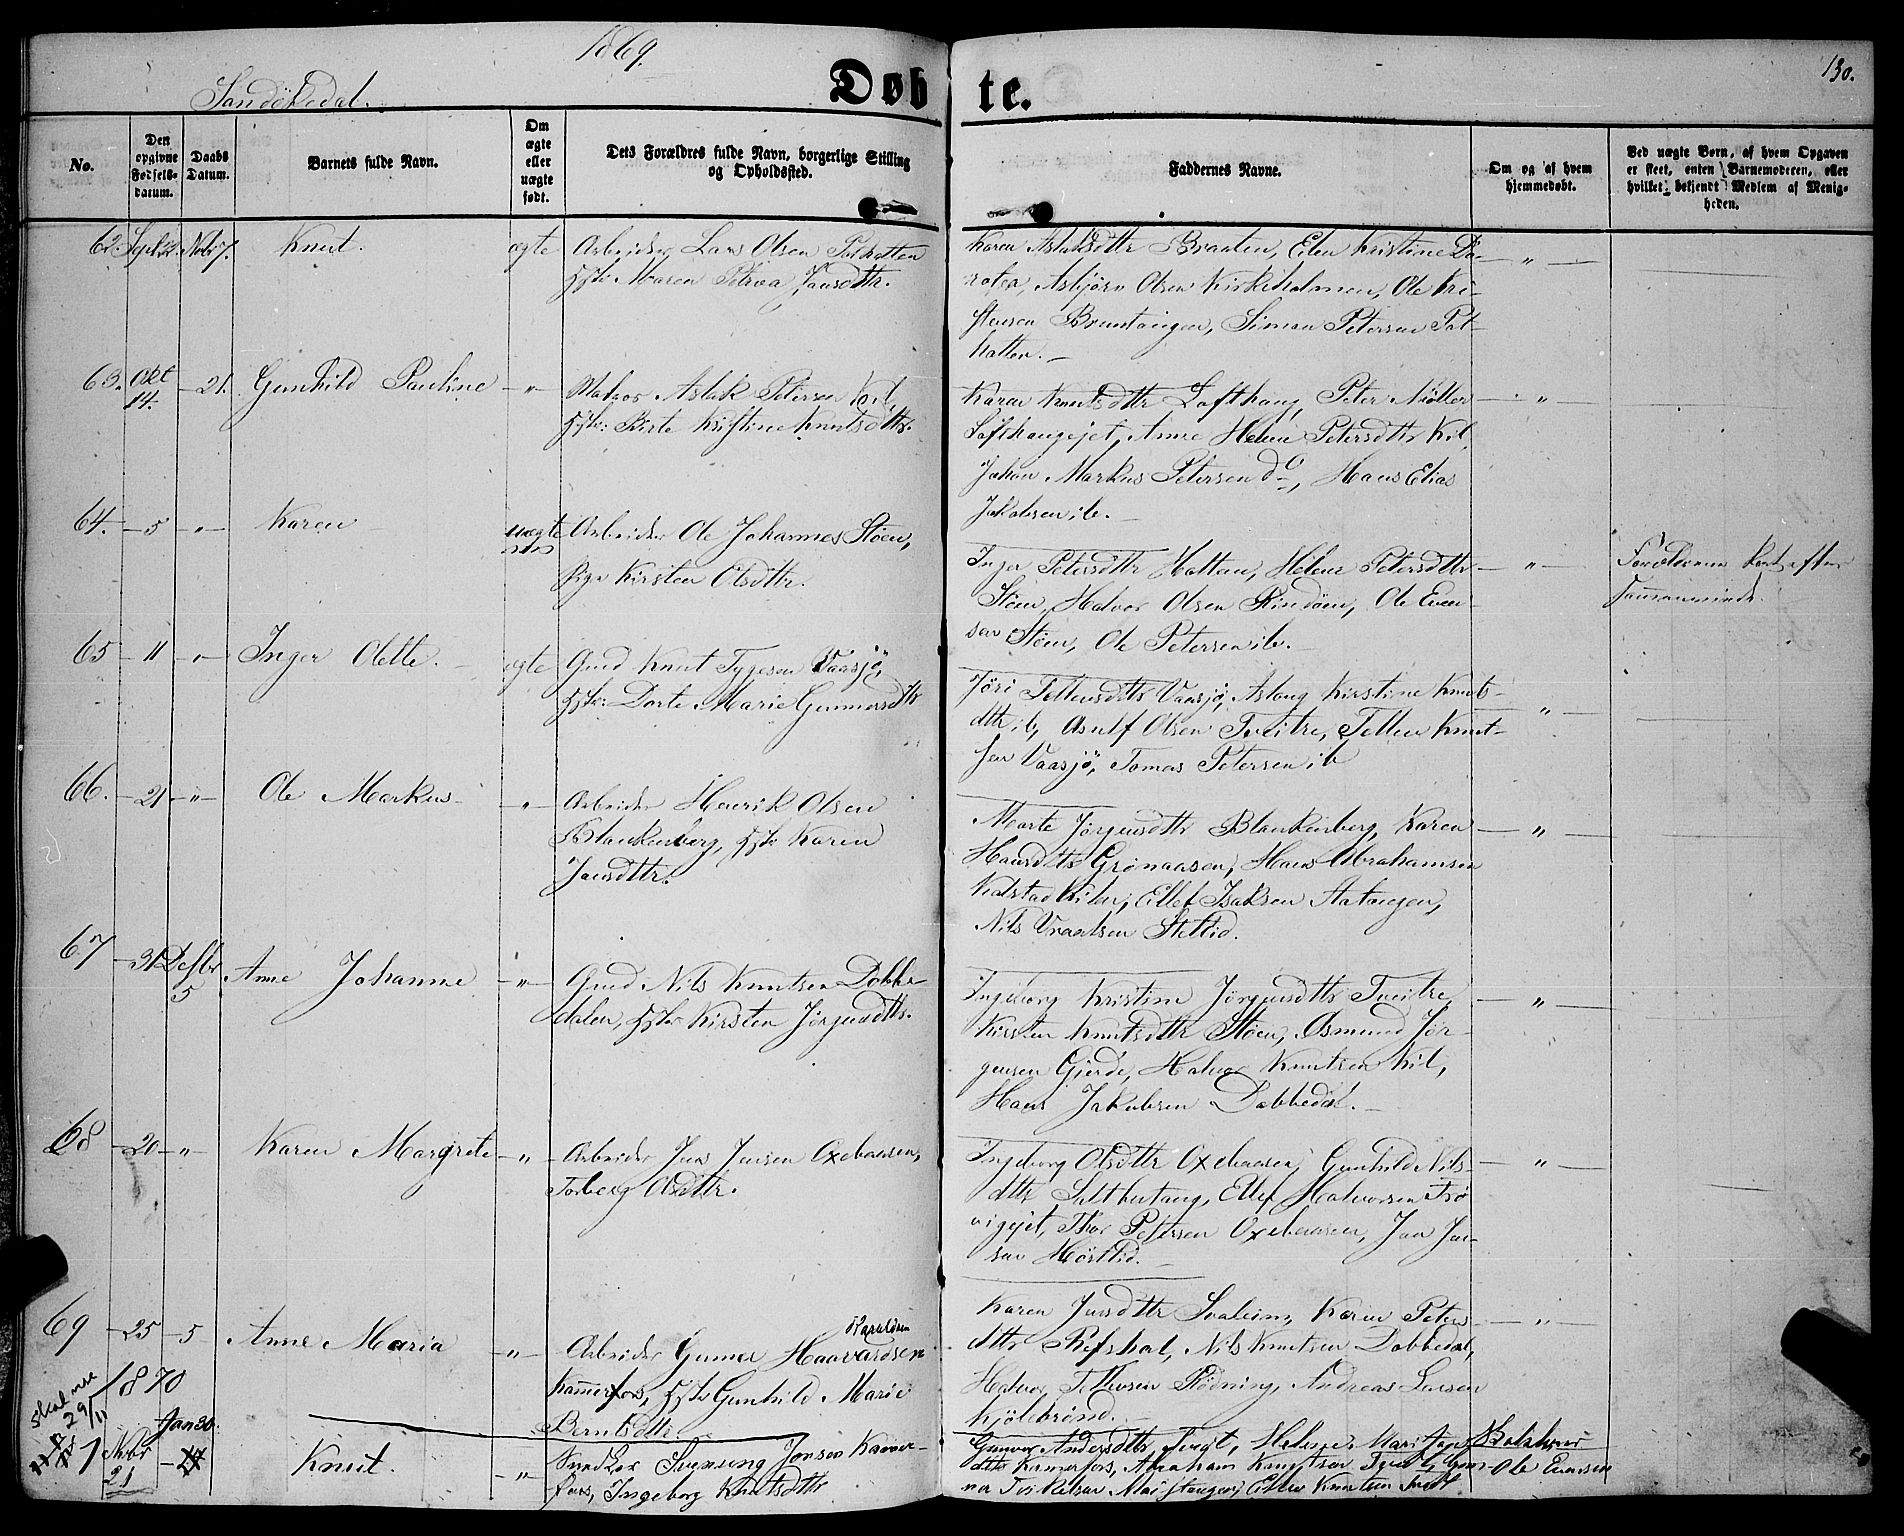 1869.
130.
Sandökedal.
Døbte.
No.
Den opgivne Fødselsdatum.
Daabs Datum.
Barnets fulde Navn.
Om ægte eller uægte født.
Dets Forældres fulde Navn, borgerlige Stilling og Opholdssted.
Faddernes Navne.
Om og af hvem hjemmedøbt.
Ved uægte Børn, af hvem Opgaven er skeet, enten Barnemoderen, eller hvilket bekjendt Medlem af Menigheden.
62. Septbr Nvbr 7. Knut. ægte
Arbeider Lars Olsen Pothatten
Hstr: Maren Petrea Jansdttr.
Karen Aslaksdttr Braaten, Elen Kristine Do-
rotea, Asbjørn Olsen Kirkeholmen, Ole Kri-
stensen Bruntangen, Simon Petersen Pot-
hatten.
63. Okt 14. 21. Gunhild Pauline "
Matros Aslak Petersen Kil,
Hstr: Birte Kristine Knutsdttr.
Karen Knutsdttr Lofthaug, Peter Møller
Lofthaugejet, Anne Helene Petersdttr Kil
Johan Markus Petersen do, Hans Elias
Jakobsen ib.
64. 5 " Karen uægte
Arbeider Ole Johannes Støen,
Pige Kirsten Olsdttr.
Inger Petersdttr Hatten, Helene Petersdttr
Støen, Halvor Olsen Rindøen, Ole Even-
sen Støen, Ole Petersen ib.
Forældrenes Kort efter
65 11 " Inger Olette. ægte
Gmd Knut Tygesen Vaasjø,
Hstr: Dorte Marie Gunnersdttr
Jøri Tellensdttr Vaasjø, Aslaug Kirstine Knuts-
dttr ib, Asulf Olsen Tveitre, Tellen Knut-
sen Vaasjø, Tomas Petersen ib
66. 21 " Ole Markus "
Arbeider Henrik Olsen
Blankenberg, Hstr Karen
Jansdttr.
Marte Jørgensdttr Blankenberg, Karen
Hansdttr Grønaasen, Hans Abrahamsen
Kalstadkilen, Ellef Isaksen Aatangen,
Nils Vraalsen Stellid.
67 31 Desbr 5 Anne Johanne "
Gmd Nils Knutsen Dobbe-
dalen, Hstr Kirsten Jørgensdttr.
Ingeborg Kristine Jørgensdttr Tveitre,
Kirsten Knutsdttr Støen, Osmund Jør-
gensen Gjerde, Halvor Knutsen Kil,
Hans Jakobsen Dobbedal.
68 20 " Karen Margrete "
Arbeider Jens Jensen Oxebaasen,
Torberg Olsdttr.
Ingeborg Olsdttr Oxebaasen, Gunhild Nils-
dttr Saltbutang, Ellef Halvorsen Frø-
vigejet, Thor Petersen Oxebaasen, Jan Jan-
sen Høstlid.
69 25 5 Anne Maria "
Arbeider Gunner Haavardsen
Kammerfos, Hstr Gunhild Marie
Berntsdttr
Karen Jensdttr Svaleim, Karen Peters-
dttr Refshal, Nils Knutsen Dobbedal,
Halvor Tellevsen Rødning, Andreas Larsen
Kjølebrønd.
1870
Skal være
29/11
1 Nvbr 21 Jan 30. Knut. "
Svenung Jonsen Kamer-
fors, Ingeborg Knutsdttr
Gunvor Andersdttr Tveit, Helene Mari Jans-
dttr Kamerfors, Abraham Knutsen Tveit, Gun-
nar Terkelsen Maistangen, Ellev Knutsen Tveit
Ole Evensen